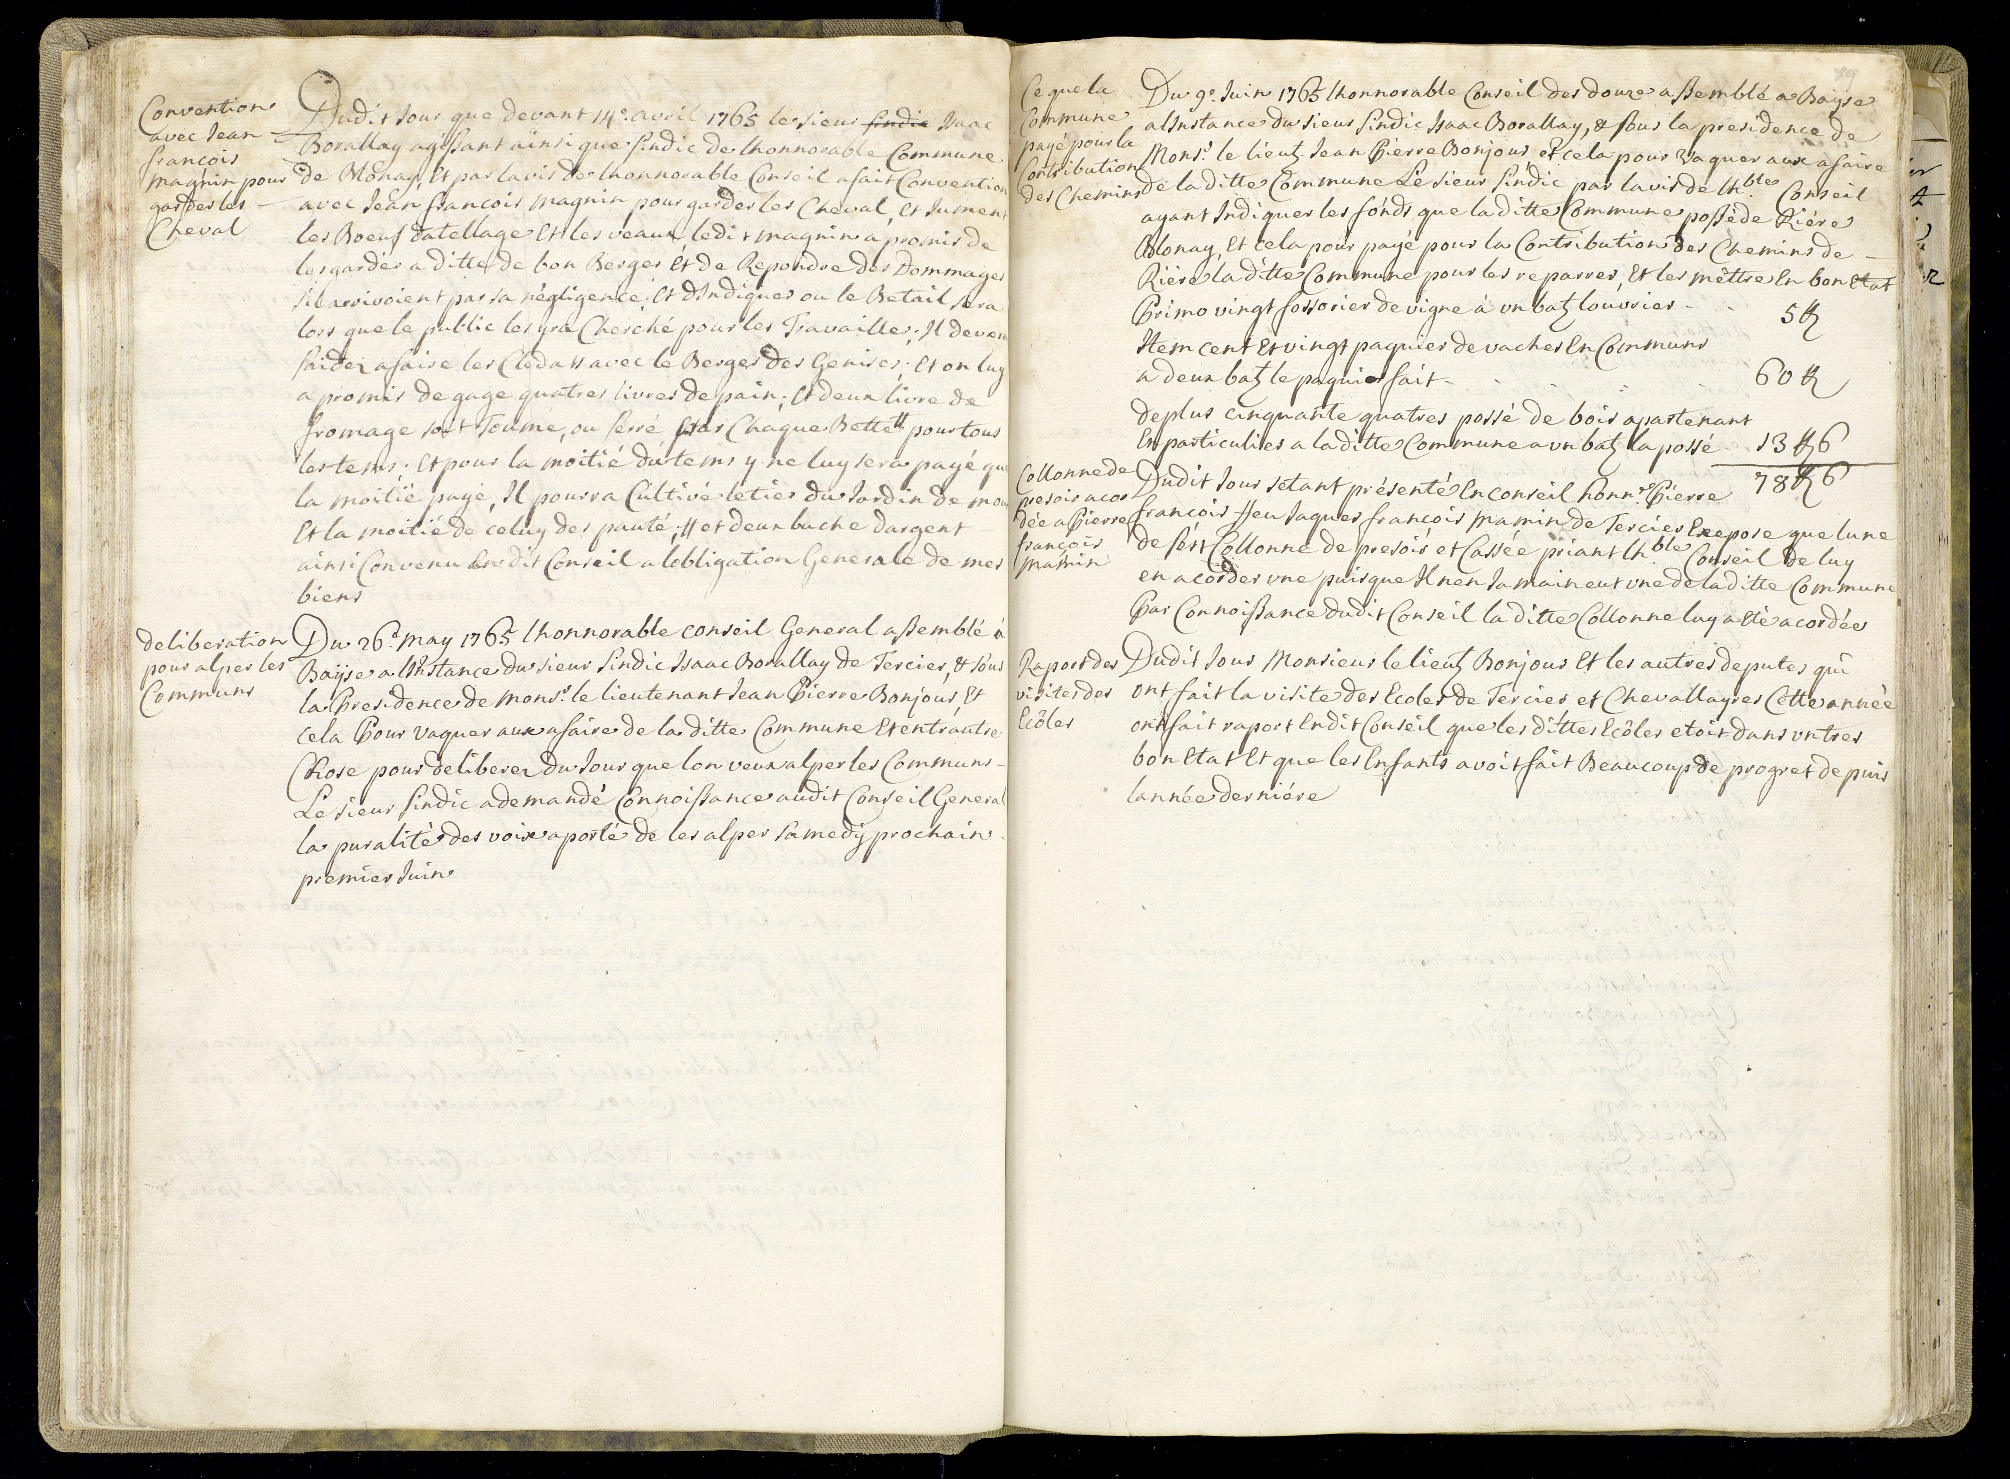 Convention
avec Jean
françois
magnin pour
garder les
Cheval
Dudit Jour que devant 14e. avril 1765 le sieur sindic Isaac
Borallay agissant äinsi que sindic de lhonnorable Commune
de Blonay, Et par lavis de lhonnorable Conseil a fait Convention
avec Jean françois magnin pour garder les Cheval, Et Jument
les Boeuf datellage Et les veaux, ledit magnin a promis de
les garder a ditte de bon Berger Et de Repondre des Dommages
sil arrivoient par sa négligence, Et dIndiquer ou le Betail sera
lors que le public les yra Cherché pour les Travaille, Il devera
saider a faire les Cledass avec le Berger des Genises, Et on luy
a promis de gage quatres livres de pain, Et deux livre de
fromage soit Toume, ou serré par Chaque Bette pour tous
les tems, Et pour la moitié du tems y ne luy sera payé que
la moitié paye, Il pourra Cultivé le tier du Jardin de mou
Et la moitié de celuy des pauté, # et deux bache dargent
ainsi Convenu En dit Conseil a lobligation Generale de mes
biens
deliberation
pour alper les
Communs
Du 26e. may 1765 lhonnorable conseil General assemblé à
Baÿse a lInstance du sieur sindic Isaac Borallay de Tercier, & sous
la Presidence de monsr. le lieutenant Jean Pierre Bonjour, Et
cela Pour vaquer aux afaire de la ditte Commune Et entrautre
Chose pour deliberer du Jour que lon veux alper les Communs
Le sieur sindic a demandé Connoissance audit Conseil General
la puralité des voix a porté de les alper samedÿ prochain
premier Juin
Ce que la
Commune
payé pour la
Contribution
des Chemins
Du 9e. Juin 1765 lhonnorable Conseil des douze assemblé a Baÿse
a lInstance du sieur sindic Isaac Borallay, & sous la presidence de
Monsr. le lieut Jean Pierre Bonjour et cela pour vaquer aux afaire
de la ditte Commune Le sieur sindic par lavis de lhble Conseil
ayant Indiquer les fonds que la ditte Commune possède Riére
Blonay, Et cela pour payé pour la Contribution des Chemins de
Riére la ditte Commune pour les reparrer, Et les mêttre En bon Etat
Primo vingt fossorier de vigne à un batz louvrier - - 5 ℔
Item cent Et vingt paquier de vaches En Communs
a deux batz le paquier fait - - - - 60 ℔
de plus cinquante quatres possé de bois apartenant
En particulier a la ditte Commune a un batz la possé 13 ℔ 6
78 ℔ 6
Collonne de
presoir acor
dée a Pierre
françois
mamin
Dudit Jour setant présenté En conseil honnr. Pierre
françois feu Jaques françois mamin de Tercier Exepose que lune
de ses Collonne de presoir et Cassée priant lhble Conseil de luy
en acorder une puisque Il nen Jamain eut une de la ditte Commune
Par Connoissance dudit Conseil la ditte Collonne luy a Eté acordée
Raport des
visites des
Ecôles
Dudit Jour Monsieur le lieut Bonjour Et les autres deputes qui
ont fait la visite des Ecoles de Tercier et Chevallayres Cette année
ont fait raport En dit Conseil que les dittes Ecôles etoit dans un tres
bon Etat Et que les Enfants avoit fait Beaucoup de progret depuis
lannée derniére